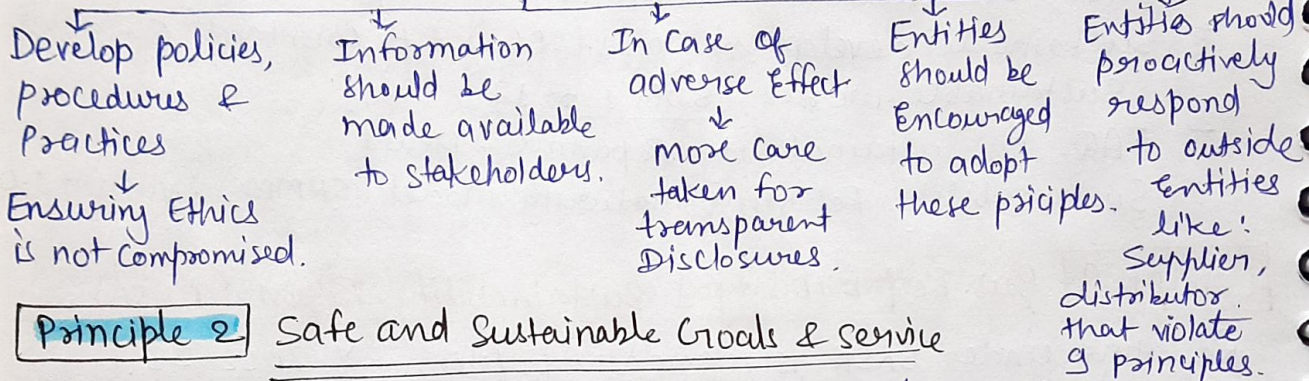 Develop policies,
procedures &
Practices
↓
Ensuring Ethics
is not compromised.
Information
should be
made available
to stakeholders.
In Case of
adverse Effect
↓
more care
taken for
transparent
Disclosures.
Entities
should be
Encouraged
to adopt
these priciples.
Entities should
proactively
respond
to outside
Entities
like:
Supplier,
distributor.
that violate
9 principles.
Principle 2 Safe and Sustainable Goals & service